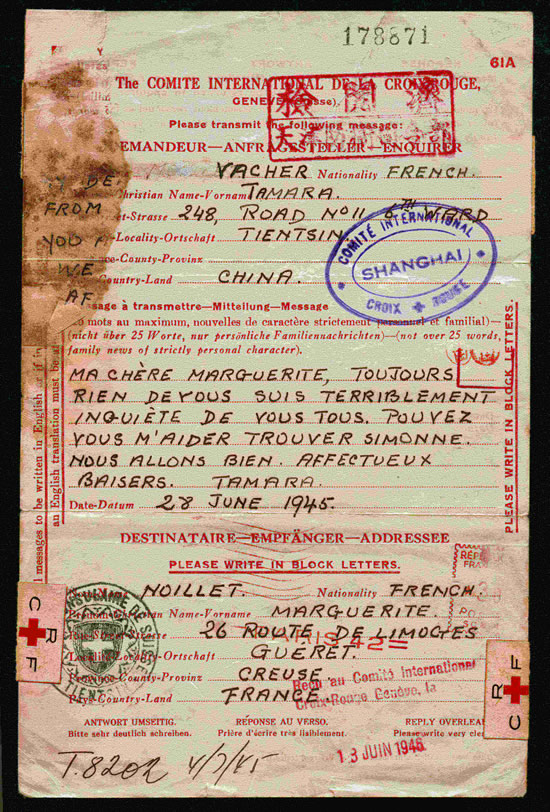 178871
61A
The COMITE INTERNATIONAL DE LA CROIX ROUGE,
GENEVE (Suisse).
Please transmit the following message:
檢閱濟
天津
DEMANDEUR—ANFRAGESTELLER—ENQUIRER
VACHER Nationality FRENCH.
Christian Name-Vorname TAMARA.
-Strasse 248, ROAD No 11 6TH WARD
FROM
YOU
Locality-Ortschaft TIENTSIN
County-Provinz
WE
Country-Land CHINA.
AF
COMITÉ INTERNATIONAL
SHANGHAI
CROIX ROUGE
Message à transmettre—Mitteilung—Message
mots au maximum, nouvelles de caractère strictement personnel et familial)—
(nicht über 25 Worte, nur persönliche Familiennachrichten)—(not over 25 words,
family news of strictly personal character).
MA CHÈRE MARGUERITE, TOUJOURS
RIEN DE VOUS SUIS TERRIBLEMENT
INQUIÈTE DE VOUS TOUS. POUVEZ
VOUS M'AIDER TROUVER SIMONNE.
NOUS ALLONS BIEN. AFFECTUEUX
BAISERS. TAMARA.
Date-Datum 28 JUNE 1945.
messages to be written in English or if in
an English translation must be
PLEASE WRITE IN BLOCK LETTERS.
DESTINATAIRE—EMPFÄNGER—ADDRESSEE
PLEASE WRITE IN BLOCK LETTERS.
NOILLET. Nationality FRENCH.
Name-Vorname MARGUERITE.
Strasse 26 ROUTE DE LIMOGES
Locality-Ortschaft GUÉRET.
County-Provinz CREUSE
Country-Land FRANCE
TIENTSIN
CRF
CRF
Reçu au Comité International
Croix-Rouge Genève, la
13 JUIN 1946
ANTWORT UMSEITIG. RÉPONSE AU VERSO. REPLY OVERLEAF
Bitte sehr deutlich schreiben. Prière d'écrire très lisiblement. Please write very
T.8202 4/7/45